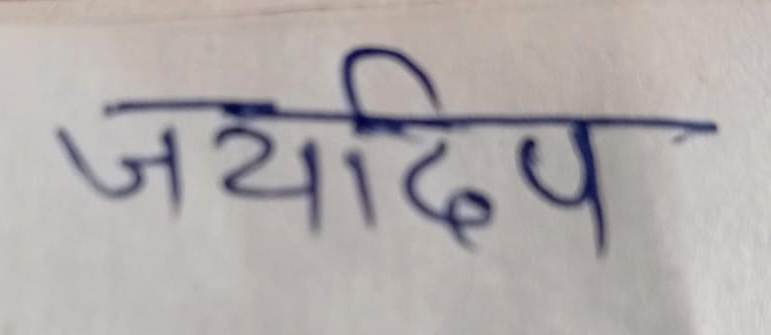 जयदिप